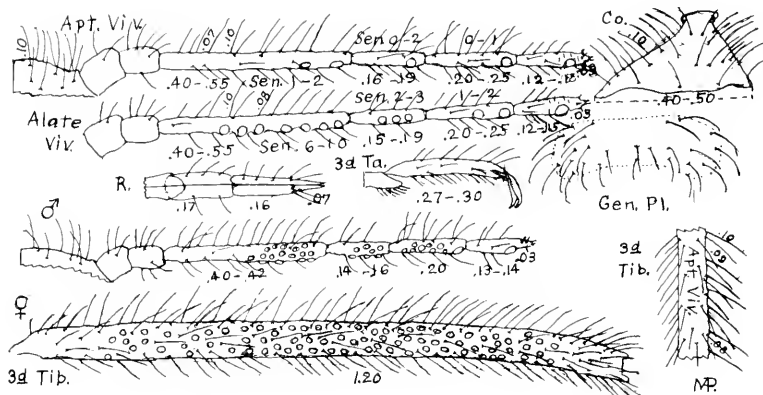 .10 Apt. Viv. .07 .10 Sen. 0-2 0-1 Co. .10
.40-.55 Sen. 1-2 .16-.19 .20-.25 .12-.18 .03
.40-.50
Alate Viv. .10 .03 Sen. 2-3 1-2
.40-.55 Sen. 6-10 .15-.19 .20-.25 .12-.15 .03
R. .17 .16 .07
3d Ta. .27-.30
Gen. Pl.
♂ .40-.42 .14-.16 .20 .13-.14 .03
3d Tib. Apt. Viv. .10
♀
3d Tib. 1.20
MP.